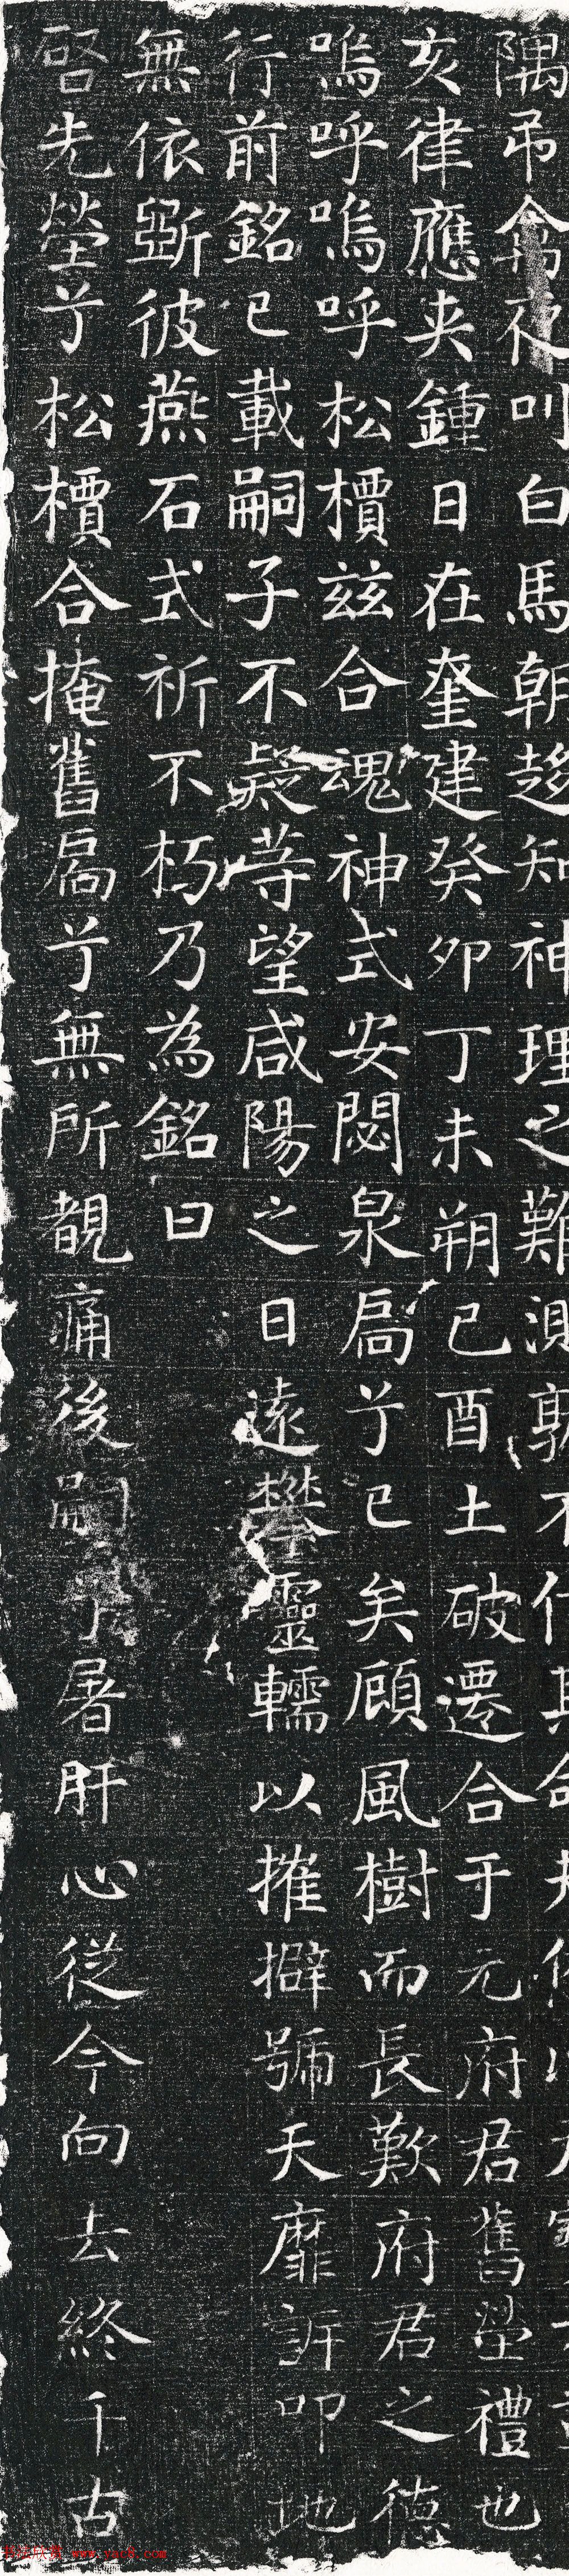 隅弔禽夜叫白馬朝趍知神理之難測孰不
亥律應夾鍾日在奎建癸卯丁未朔己酉土破遷合于元府君舊塋禮也
嗚呼嗚呼松檟茲合魂神式安閟泉扃兮已矣顧風樹而長歎府君之德
行前銘已載嗣子不疑等望咸陽之日遠攀靈轜以摧擗號天靡訴叩地
無依斲彼燕石式祈不朽乃為銘曰
啓先塋兮松檟合掩舊扃兮無所覩痛後嗣兮屠肝心從今向去終千古